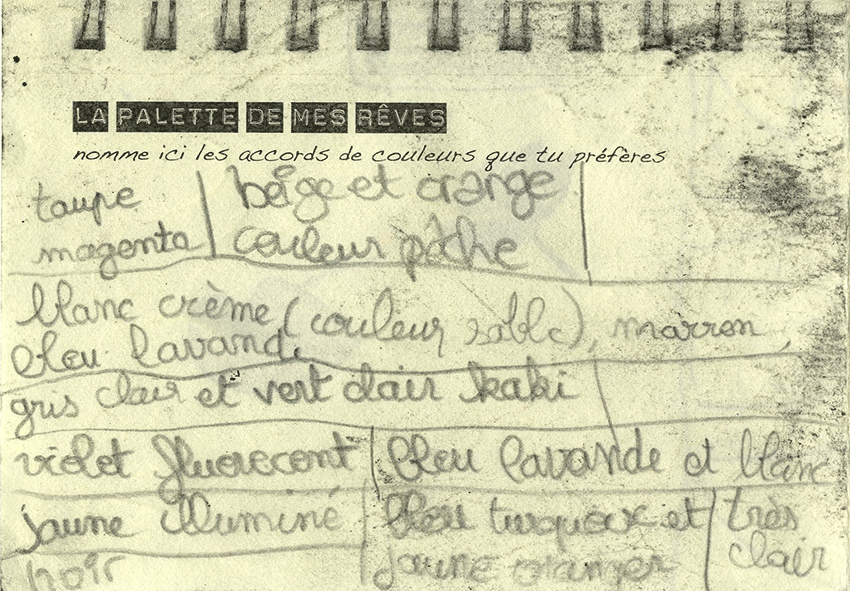 LA PALETTE DE MES RÊVES
nomme ici les accords de couleurs que tu préfères
taupe beige et orange
magenta couleur pâche
blanc crème (couleur sable), marron,
bleu lavande
gris clair et vert clair kaki
violet fluorecent bleu lavande et blanc
jaune illuminé bleu turqueoxe et très
noir jaune oranger clair